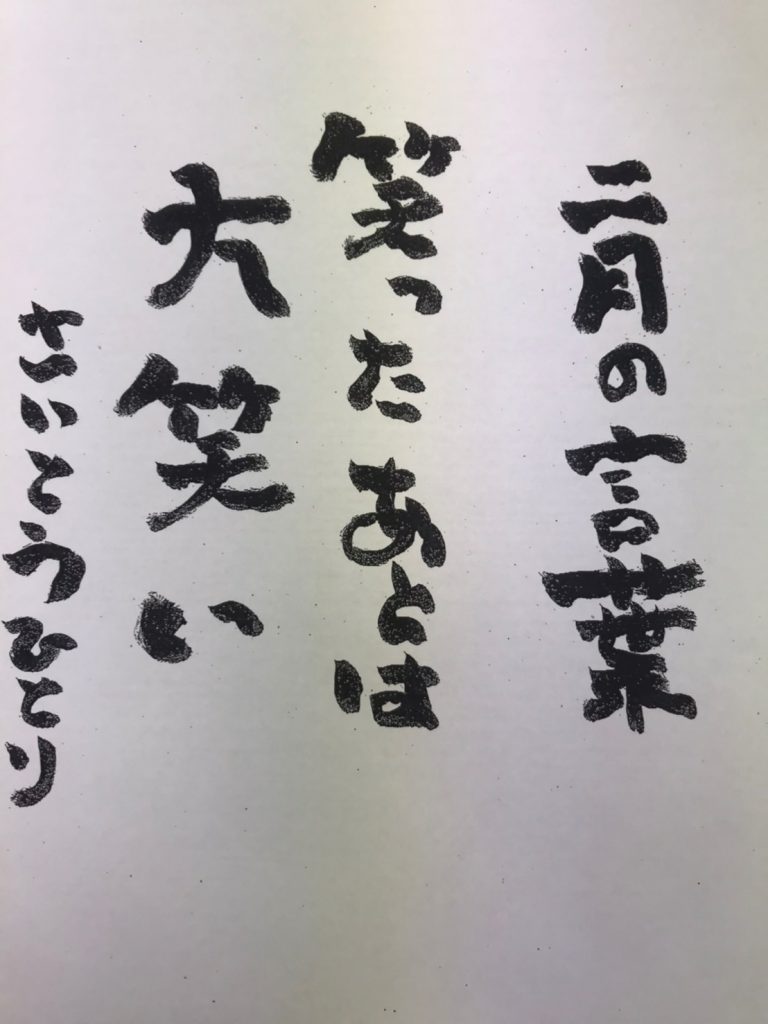 三月の言葉
笑ったあとは
大笑い
さいとうひとり